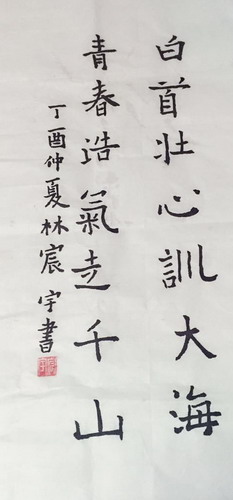 白首壮心訓大海
青春浩氣走千山
丁酉仲夏林宸宇書